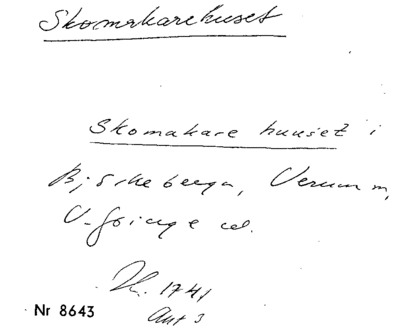 Skomakarehuset
Skomakare huuset i
Bjärkeberga, Verum sn,
V-Göinge hd.
1741
Ant 3
Nr 8643